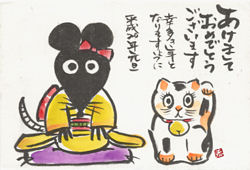 あけまして
おめでとう
ございます
幸多き年と
なりますように
平成20年元旦